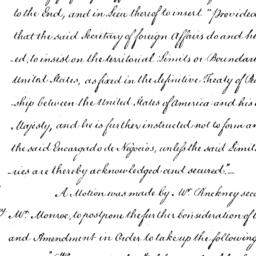 to the End, and in Lieu thereof to insert "Provided
that the said Secretary of foreign Affairs do and he
ed, to insist on the territorial Limits or Boundar
United States, as fixed in the definitive Treaty of
ship between the United States of America and his
Majesty, and he is further instructed not to form an
the said Encargado de Négocios, unless the said Limit
ries are thereby acknowledged and secured."
A Motion was made by Mr Pinckney sec
Mr. Monroe, to postpone the further Consideration of
and Amendment in Order to take up the following